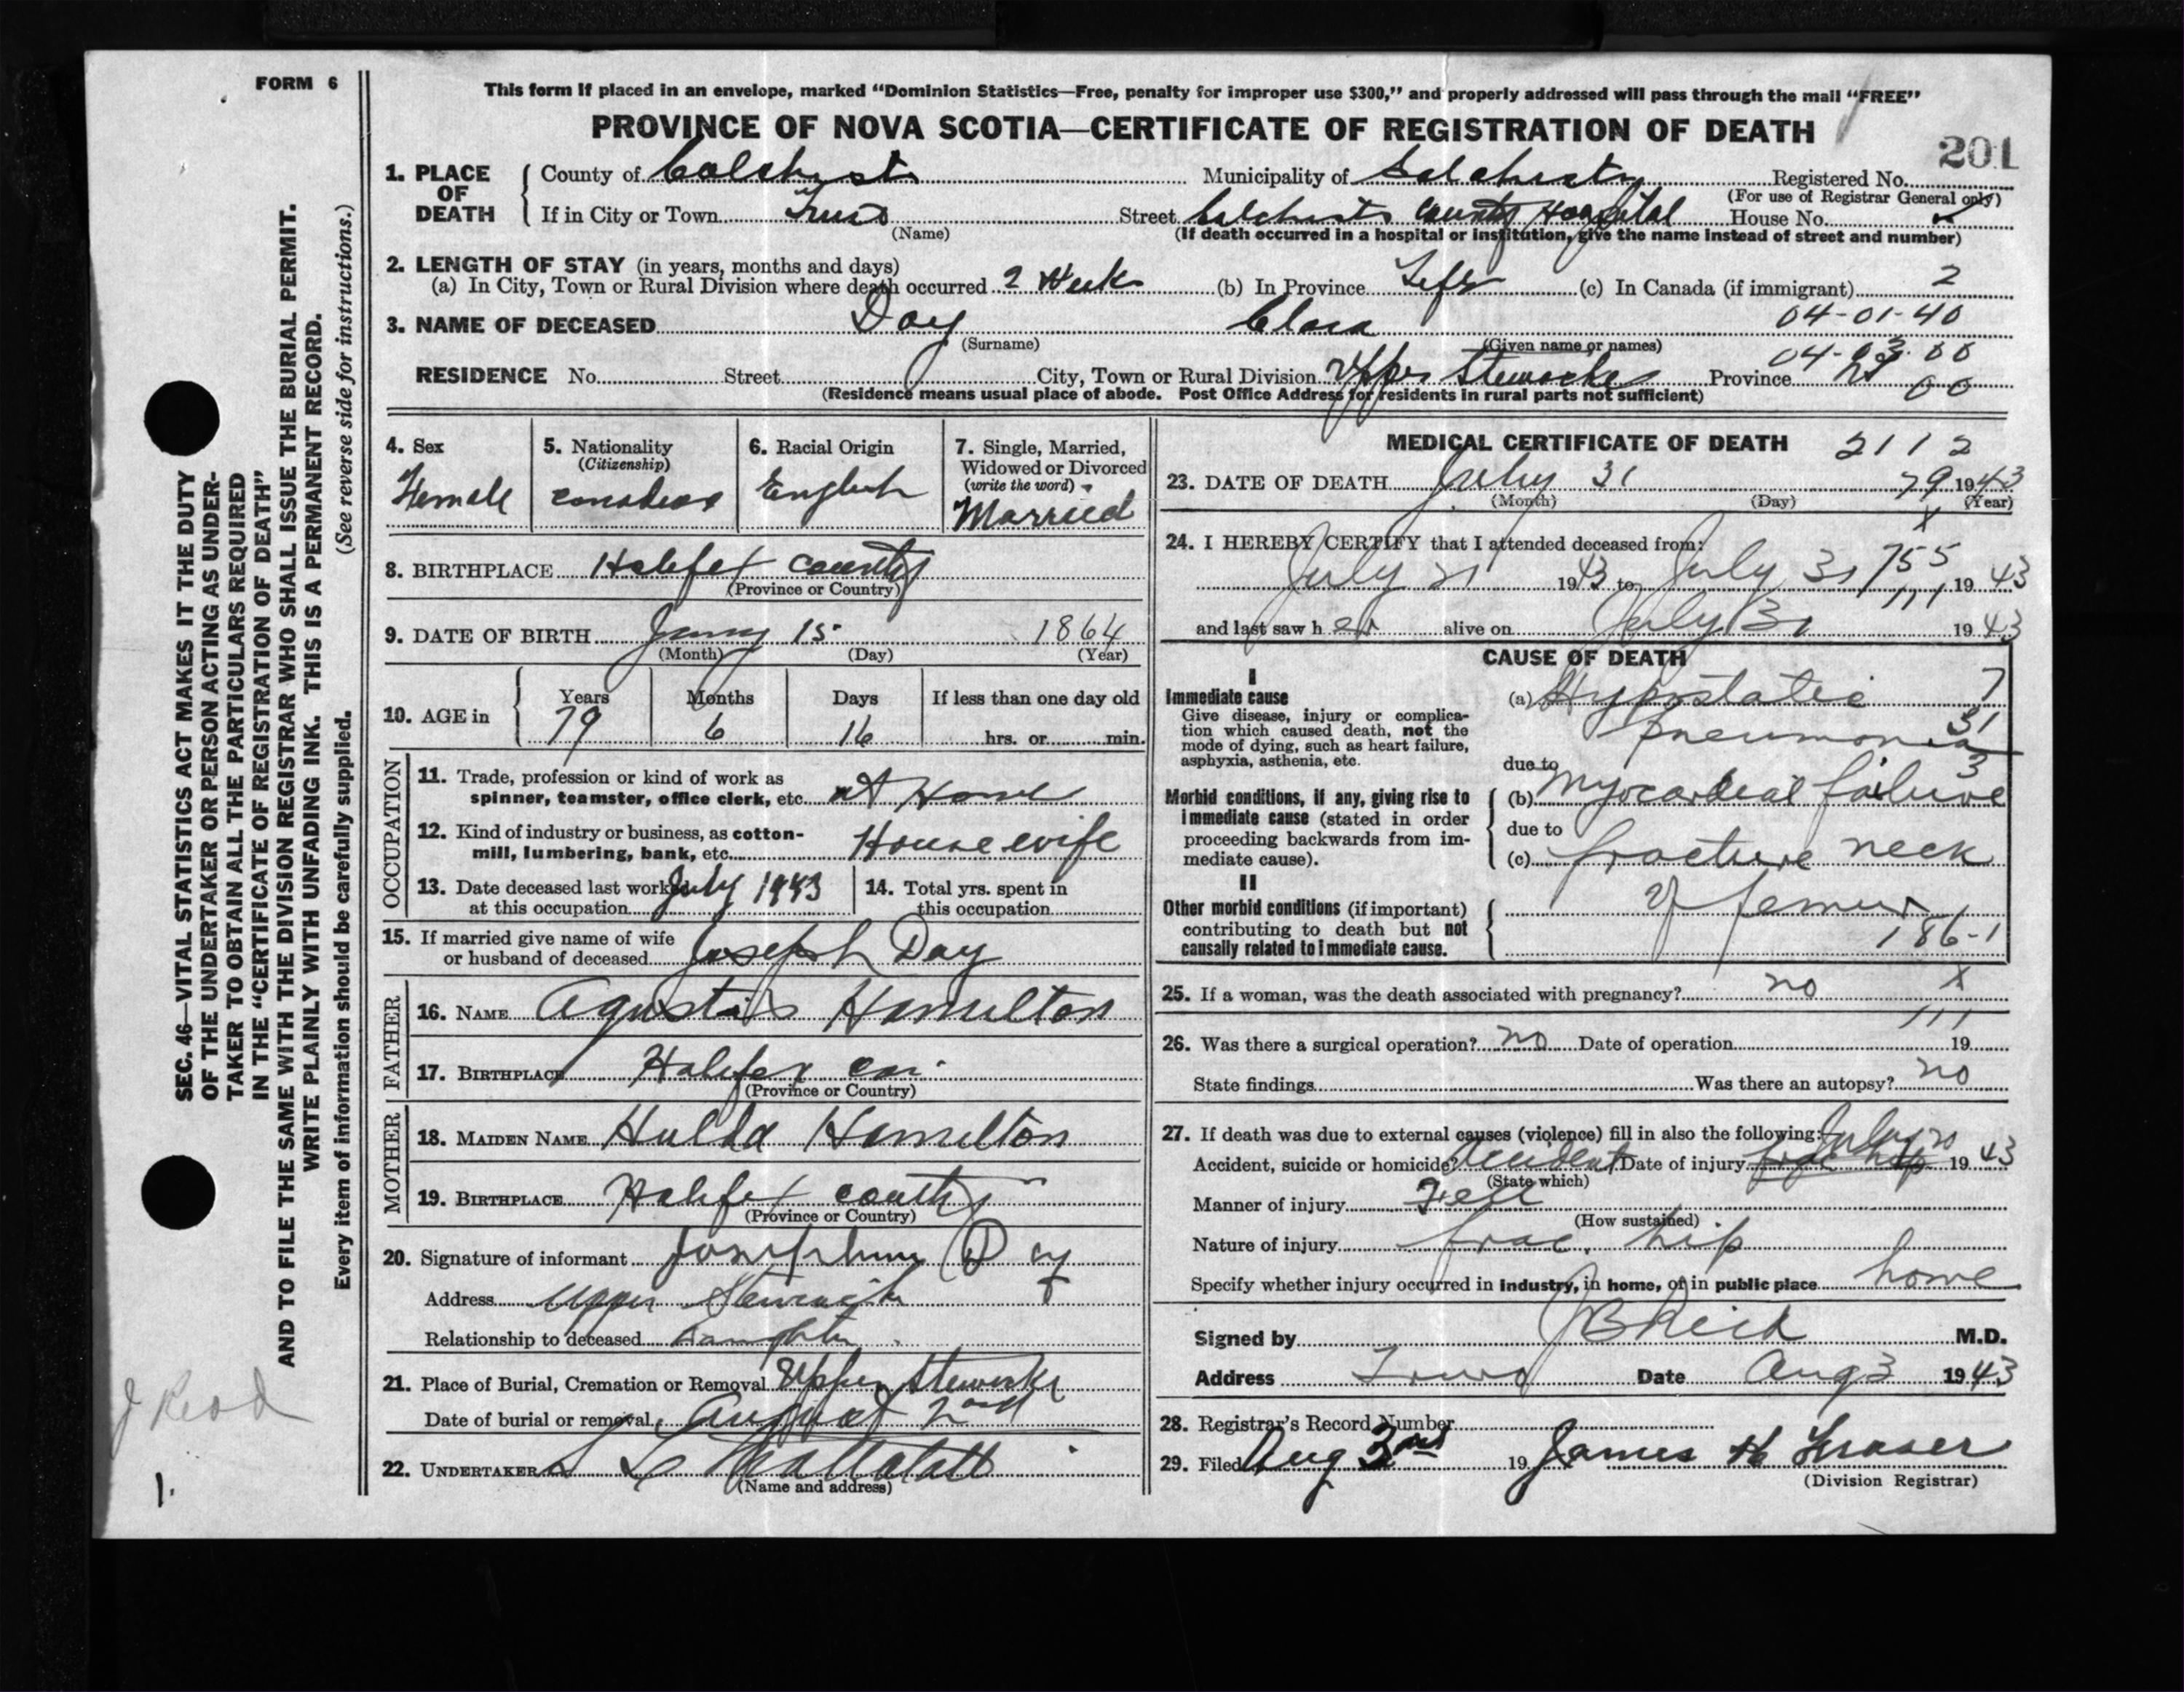 FORM 6
This form if placed in an envelope, marked “Dominion Statistics—Free, penalty for improper use $300,” and properly addressed will pass through the mail “FREE”
PROVINCE OF NOVA SCOTIA—CERTIFICATE OF REGISTRATION OF DEATH
201
1. PLACE OF DEATH
County of Colchester Municipality of Colchester Registered No.
(For use of Registrar General only)
If in City or Town Truro Street Colchester County Hospital House No.
(Name) (If death occurred in a hospital or institution, give the name instead of street and number)
2. LENGTH OF STAY (in years, months and days)
(a) In City, Town or Rural Division where death occurred 2 Week (b) In Province Life (c) In Canada (if immigrant) 2
04-01-40
3. NAME OF DECEASED Day Clara
(Surname) (Given name or names)
04-03-00
RESIDENCE No. Street City, Town or Rural Division Upper Stewiacke Province 00
(Residence means usual place of abode. Post Office Address for residents in rural parts not sufficient)
4. Sex
Female
5. Nationality
(Citizenship)
Canadian
6. Racial Origin
English
7. Single, Married, Widowed or Divorced
(write the word)
Married
8. BIRTHPLACE Halifax County
(Province or Country)
9. DATE OF BIRTH 15 1864
(Month) (Day) (Year)
10. AGE in
Years Months Days If less than one day old
79 6 16 hrs. or min.
OCCUPATION
11. Trade, profession or kind of work as
spinner, teamster, office clerk, etc. at Home
12. Kind of industry or business, as cotton-
mill, lumbering, bank, etc. House wife
13. Date deceased last worked
at this occupation July 1943
14. Total yrs. spent in
this occupation
15. If married give name of wife
or husband of deceased Joseph Day
FATHER
16. NAME Hamilton
17. BIRTHPLACE Halifax
(Province or Country)
MOTHER
18. MAIDEN NAME Hulda Hamilton
19. BIRTHPLACE Halifax
(Province or Country)
20. Signature of informant Day
Address Upper
Relationship to deceased Daughter
21. Place of Burial, Cremation or Removal Upper
Date of burial or removal August 2nd
22. UNDERTAKER
(Name and address)
MEDICAL CERTIFICATE OF DEATH 2112
23. DATE OF DEATH July 31 79 1943
(Month) (Day) (Year)
x
24. I HEREBY CERTIFY that I attended deceased from:
755
July 21 1943 to July 31 1943
111
and last saw her alive on July 31 1943
CAUSE OF DEATH
I
Immediate cause
Give disease, injury or complica-
tion which caused death, not the
mode of dying, such as heart failure,
asphyxia, asthenia, etc.
(a) Hypostatic 7
pneumonia 31
due to 3
Morbid conditions, if any, giving rise to
immediate cause (stated in order
proceeding backwards from im-
mediate cause).
(b) Myocardial failure
due to
(c) fracture neck
of femur
II
Other morbid conditions (if important)
contributing to death but not
causally related to immediate cause.
186-1
25. If a woman, was the death associated with pregnancy? no x
111
26. Was there a surgical operation? no Date of operation 19
State findings Was there an autopsy? no
27. If death was due to external causes (violence) fill in also the following: July 20
Accident, suicide or homicide? Accident Date of injury frac hip 1943
(State which)
Manner of injury Fell
(How sustained)
Nature of injury frac. hip
Specify whether injury occurred in industry, in home, or in public place home
Signed by M.D.
Address Truro Date Aug 3 1943
28. Registrar's Record Number
29. Filed Aug 3rd 19 James H Fraser
(Division Registrar)
SEC. 46—VITAL STATISTICS ACT MAKES IT THE DUTY
OF THE UNDERTAKER OR PERSON ACTING AS UNDER-
TAKER TO OBTAIN ALL THE PARTICULARS REQUIRED
IN THE “CERTIFICATE OF REGISTRATION OF DEATH”
AND TO FILE THE SAME WITH THE DIVISION REGISTRAR WHO SHALL ISSUE THE BURIAL PERMIT.
WRITE PLAINLY WITH UNFADING INK. THIS IS A PERMANENT RECORD.
Every item of information should be carefully supplied. (See reverse side for instructions.)
1.